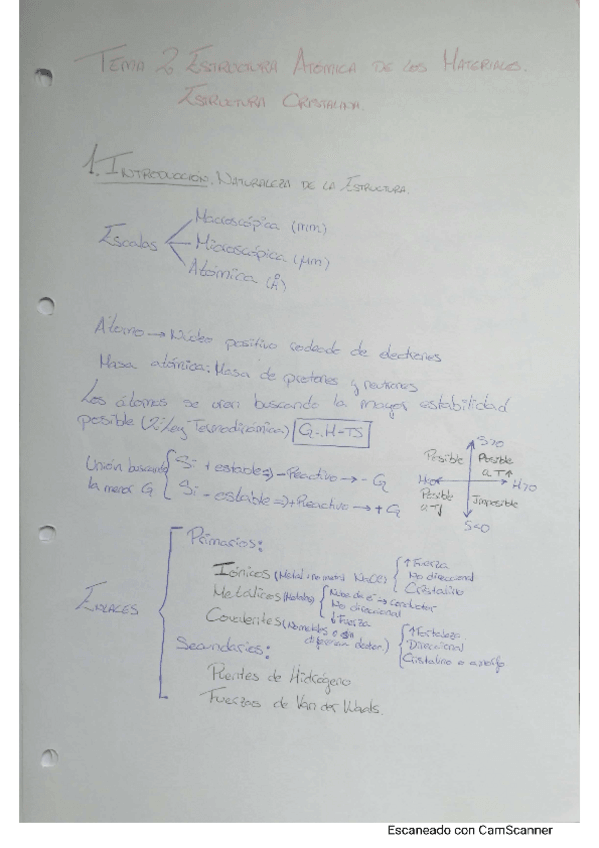 TEMA 2 ESTRUCTURA ATÓMICA DE LOS MATERIALES.
ESTRUCTURA CRISTALINA.
1. INTRODUCCIÓN. NATURALEZA DE LA ESTRUCTURA.
Escalas
Macroscópica (mm)
Microscópica (μm)
Atómica (Å)
Átomo → Núcleo positivo rodeado de electrones
Masa atómica: Masa de protones y neutrones
Los átomos se unen buscando la mayor estabilidad
posible (2ª Ley Termodinámica) G=H-TS
Unión buscando
la menor G
Si + estable ⇒ - Reactivo → - G
Si - estable ⇒ + Reactivo → + G
S>0
Posible
Posible
a T↑
H<0
H>0
Posible
a T↓
Imposible
S<0
ENLACES
Primarios:
Iónicos (Metal + no metal NaCl)
↑ Fuerza
No direccional
Cristalino
Metálicos (Metales)
Nube de e⁻ → conductor
No direccional
↓ Fuerza
Covalentes (No metales o
↑ Fortaleza
Direccional
Cristalino o amorfo
Secundarios:
Puentes de Hidrógeno
Fuerzas de Van der Waals.
Escaneado con CamScanner